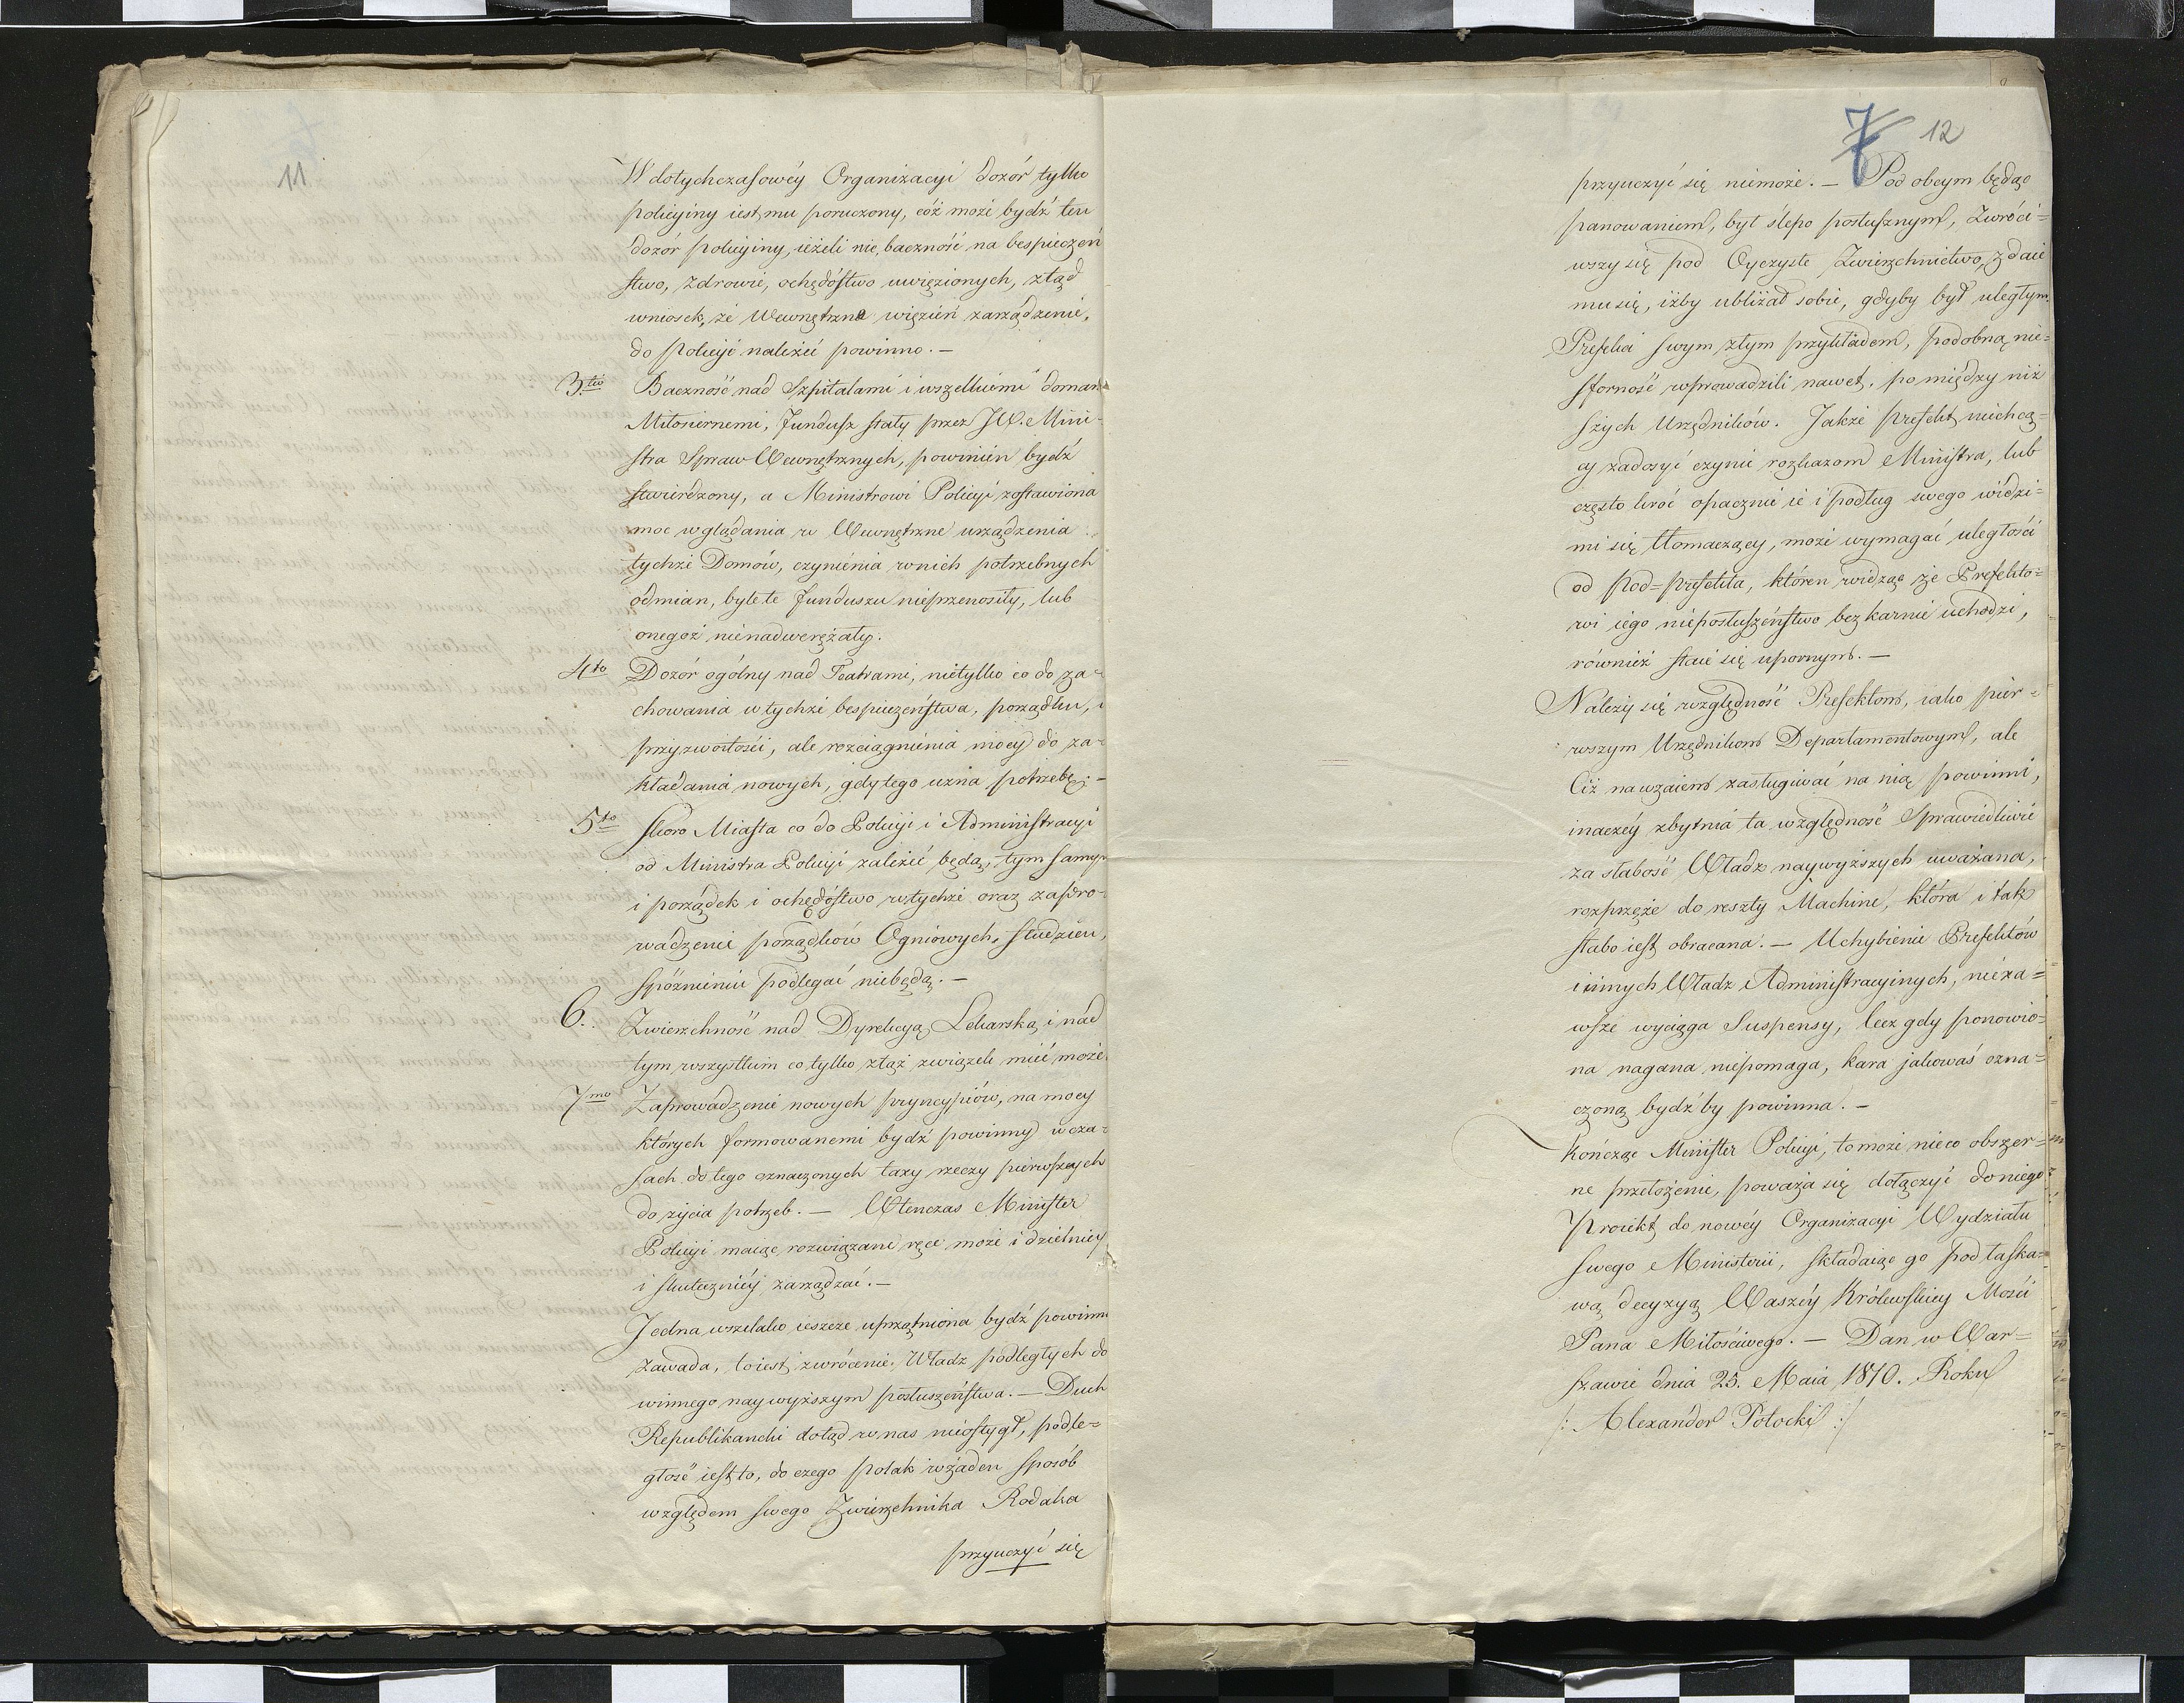 11
W dotychczasowéy Organizacyi dozór tylko
policyiny iest mu poruczony, cóż może bydź ten
dozór policyiny, ieżeli nie, baczność na bespieczeń
stwo, zdrowie, ochędóstwo uwięzionych, ztąd
wniosek, że Wewnętrzne więzień zarządzenie,
do policyi należeć powinno. —
3tio Baczność nad Szpitalami i wszelkiemi domami
Miłosiernemi, Fundusz stały przez JW. Mini-
stra Spraw Wewnętrznych, powinien bydź
stwierdzony, a Ministrowi Policyi zostawiona
moc wglądania w Wewnętrzne urządzenia
tychże Domów, czynienia w nich potrzebnych
odmian, byle te Funduszu nieprzenosiły, lub
onegoż nienadwerężały.
4to Dozór ogólny nad Teatrami, nietylko co do za-
chowania w tychże bespieczeństwa, porządku, i
przyzwoitości, ale rozciągnienia mocy do za-
kładania nowych, gdy tego uzna potrzebę. —
5to Skoro Miasta co do Policyi i Administracyi
od Ministra Policyi zależeć będą, tym samym
i porządek i ochędóstwo w tychże oraz zapro-
wadzenie porządków Ogniowych, studzien,
spóźnieniu podlegać niebędą. —
6. Zwierzchność nad Dyrekcyą Lekarską i nad
tym wszystkim co tylko ztąż związek mieć może
7mo Zaprowadzenie nowych pryncypiów, na mocy
których formowanemi bydź powinny w cza-
sach do tego oznaczonych taxy rzeczy pierwszych
do życia potrzeb. — Wtenczas Minister
Policyi maiąc rozwiązane ręce może i dzielniey
i skuteczniéy zarządzać. —
Jedna wszelako ieszcze uprzątniona bydź powinna
zawada, to iest, zwrócenie Władz podległych do
winnego naywyższym posłuszeństwa. — Duch
Republikancki dotąd w nas nieostygł, podle=
głość iest to, do czego polak w żaden sposób
względem swego Zwierzchnika Rodaka
przyuczyć się
7 12
przyuczyć się niemoże. — Pod obcym będąc
panowaniem, był ślepo posłusznym, Zwróci=
wszy się pod Oyczyste Zwierzchnictwo, zdaie
mu się, iżby ubliżał sobie, gdyby był uległym.
Prefekci swym złym przykładem, podobną nie=
sforność wprowadzili nawet, pomiędzy niż
szych Urzędników. Jakże prefekt niechcą=
cy zadosyć czynić rozkazom Ministra, lub
często kroć opacznie ie i podług swego widzi=
mi się tłomaczący, może wymagać uległości
od Pod=prefekta, któren widząc że Prefekto=
wi iego nieposłuszeństwo bezkarnie uchodzi,
również staie się upornym. —
Należy się względność Prefektom, iako pier=
wszym Urzędnikom Departamentowym, ale
Ciż nawzaiem zasługiwać na nią powinni,
inaczéy zbytnia ta względność Sprawiedliwie
za słabość Władz naywyższych uważana,
rozprzęże do reszty Machine, która i tak
słabo iest obracana. — Uchybienie Prefektów
i innych Władz Administracyinych, nieza=
wsze wyciąga Suspensy, lecz gdy ponowio=
na nagana niepomaga, kara jakowaś ozna=
czoną bydź by powinna. —
Kończąc Minister Policyi, to może nieco obszer=
ne przełożenie, poważa się dołączyć do niego
Proiekt do nowéy Organizacyi Wydziału
swego Ministerii, składaiąc go pod łaska=
wą decyzyą Waszéy Królewskiey Mości
Pana Miłościwego. — Dan w War=
szawie dnia 25. Maia 1810. Roku
/: Alexander Potocki :/